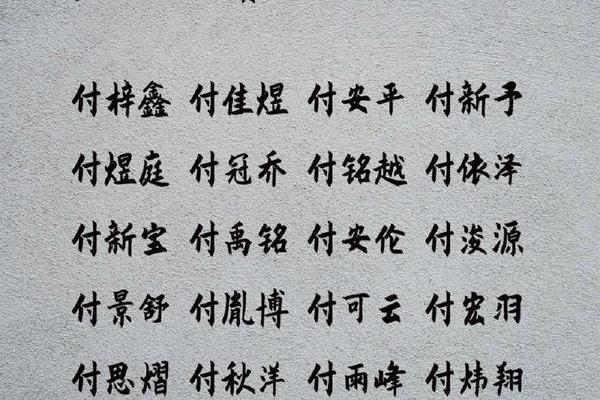 付梓鑫 付佳煜 付安平 付新予
付煜庭 付冠乔 付铭越 付依泽
付新宝 付禹铭 付安伦 付浚源
付景舒 付胤博 付可云 付宏羽
付思熠 付秋洋 付雨峰 付炜翔